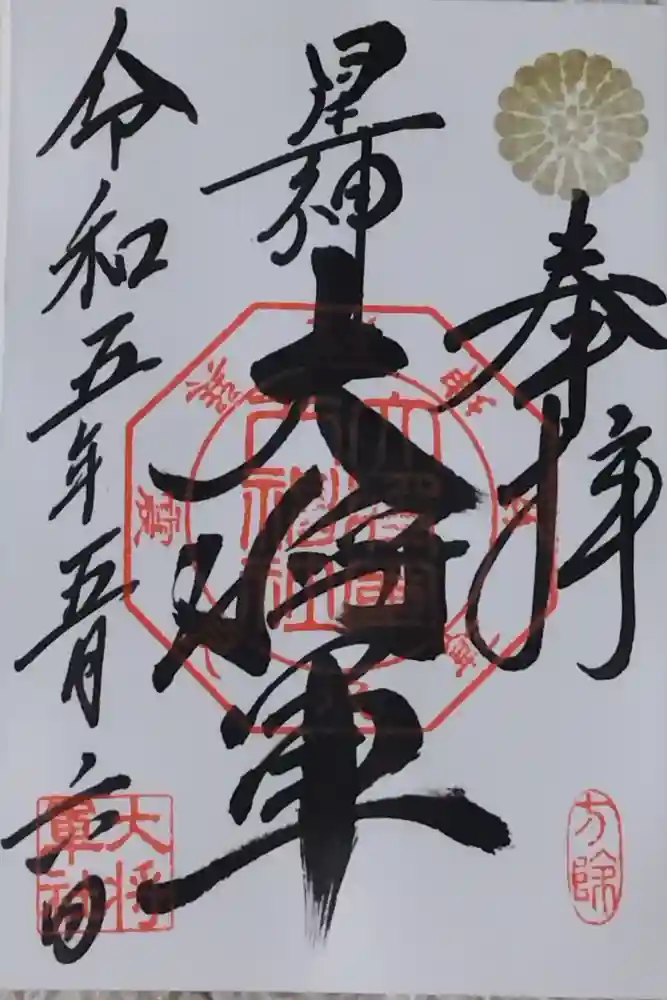 奉拝
星神
大将軍
令和五年五月六日
大将軍社
方除